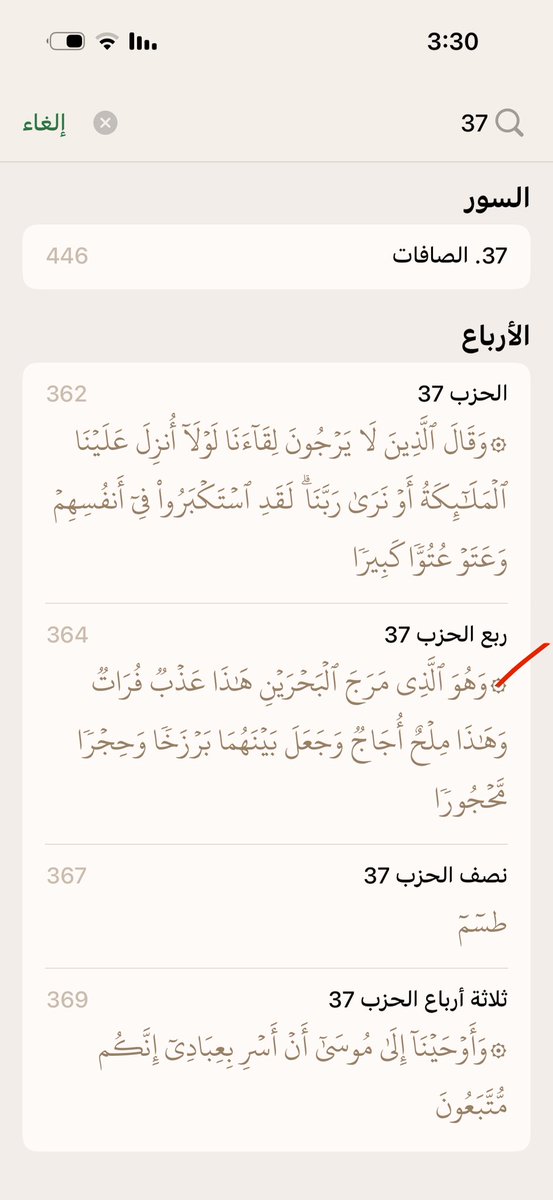 3:30
37
إلغاء
السور
37. الصافات
446
الأرباع
الحزب 37
362
۞وَقَالَ ٱلَّذِينَ لَا يَرۡجُونَ لِقَآءَنَا لَوۡلَآ أُنزِلَ عَلَيۡنَا
ٱلۡمَلَـٰٓئِكَةُ أَوۡ نَرَىٰ رَبَّنَاۗ لَقَدِ ٱسۡتَكۡبَرُواْ فِيٓ أَنفُسِهِمۡ
وَعَتَوۡ عُتُوّٗا كَبِيرٗا
ربع الحزب 37
364
۞وَهُوَ ٱلَّذِي مَرَجَ ٱلۡبَحۡرَيۡنِ هَٰذَا عَذۡبٞ فُرَاتٞ
وَهَٰذَا مِلۡحٌ أُجَاجٞ وَجَعَلَ بَيۡنَهُمَا بَرۡزَخٗا وَحِجۡرٗا
مَّحۡجُورٗا
نصف الحزب 37
367
طسٓمٓ
ثلاثة أرباع الحزب 37
369
۞وَأَوۡحَيۡنَآ إِلَىٰ مُوسَىٰٓ أَنۡ أَسۡرِ بِعِبَادِيٓ إِنَّكُم
مُّتَّبَعُونَ